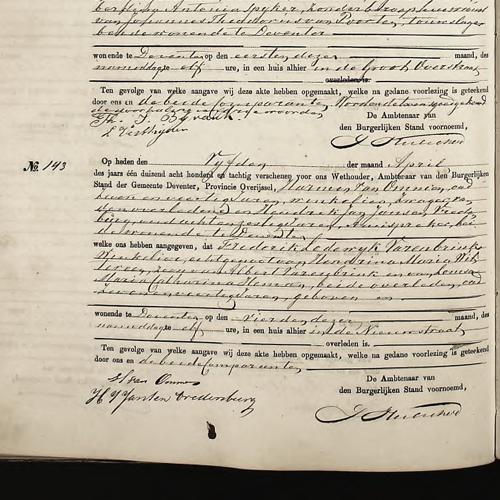 Antonia Spyker, zonder beroep
van Johannes Theodorus van Poorten, touwslager
beiden wonende te Deventer
wonende te Deventer op den eersten dezer maand, des
namiddags elf ure, in een huis alhier in de Groote Overstraat
overleden is.
Ten gevolge van welke aangave wij deze akte hebben opgemaakt, welke na gedane voorlezing is geteekend
door ons en de beide comparanten
De Ambtenaar van
den Burgerlijken Stand voornoemd,
No. 143
Op heden den Vyfden der maand April
des jaars één duizend acht honderd en tachtig verschenen voor ons Wethouder, Ambtenaar van den Burgerlijken
Stand der Gemeente Deventer, Provincie Overijssel, Harmen van Ommen, oud
zeven en veertig jaren, winkelier, zwager
van overledene en Hendrik Jan Jansen Vreden
burg, oud zes jaren, huisbe
wonende te Deventer
welke ons hebben aangegeven, dat Frederik Lodewyk Varenbrink
winkelier, echtgenoot van Hendrina Maria Wit
zoon van Albert Varenbrink en van Louisa
Maria Catharina Heman, beide overleden, oud
zeven en veertig jaren, geboren en
wonende te Deventer op den vierden dezer maand, des
namiddags elf ure, in een huis alhier in de Nieuwstraat
overleden is.
Ten gevolge van welke aangave wij deze akte hebben opgemaakt, welke na gedane voorlezing is geteekend
door ons en de beide comparanten
De Ambtenaar van
den Burgerlijken Stand voornoemd,
H van Ommen
H J Jansen Vredenburg